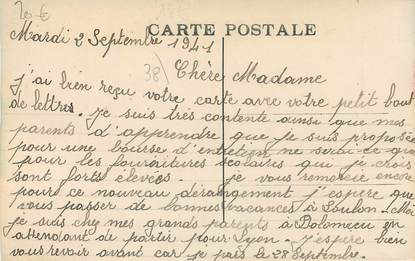 20 €
CARTE POSTALE
Mardi 2 Septembre 1941
38) Chère Madame
j'ai bien reçu votre carte avec votre petit bout
de lettres. je suis très contente ainsi que mes
parents d'apprendre que je suis proposée
pour une bourse d'entretien ne serai-ce que
pour les fournitures scolaires qui je crois
sont forts élevées. je vous remercie encore
pour ce nouveau dérangement j'espère que
vous passer de bonnes vacances à Toulon. Moi
je suis chez mes grands parents à Dolomieu en
attendant de partir pour Lyon. j'espère bien
vous revoir avant car je pars le 28 Septembre.